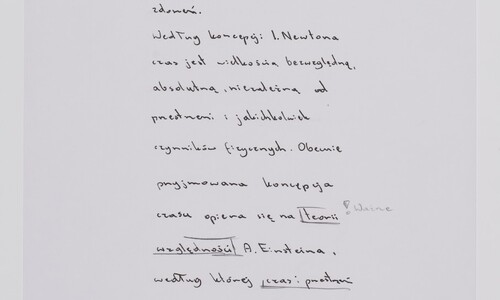 zdarzeń.
Według koncepcji I. Newtona
czas jest wielkością bezwzględną,
absolutną, niezależną od
przestrzeni i jakichkolwiek
czynników fizycznych. Obecnie
przyjmowana koncepcja
czasu opiera się na teorii
względności A. Einsteina,
według której czas i przestrzeń